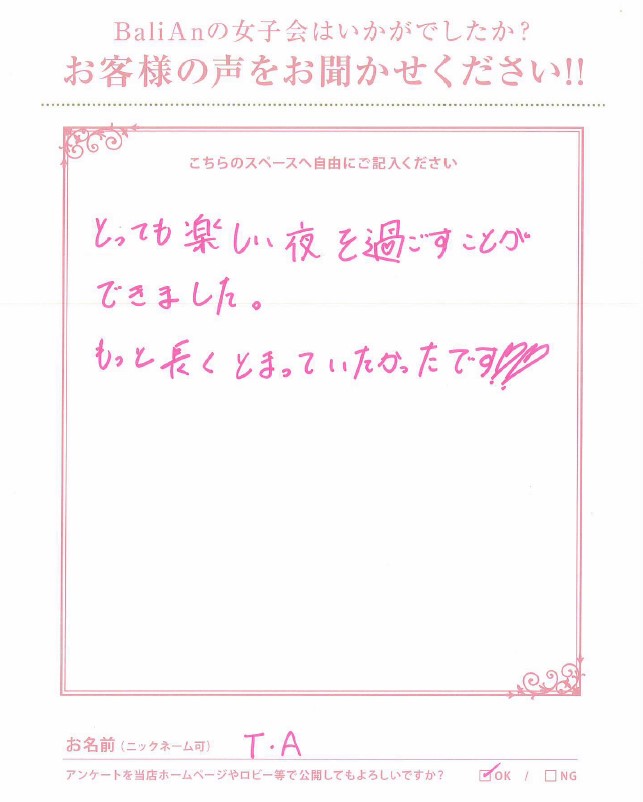 BaliAnの女子会はいかがでしたか?
お客様の声をお聞かせください!!
こちらのスペースへ自由にご記入ください
とっても楽しい夜を過ごすことが
できました。
もっと長くとまっていたかったです!!♡♡
お名前(ニックネーム可) T・A
アンケートを当店ホームページやロビー等で公開してもよろしいですか? ☑OK / □NG